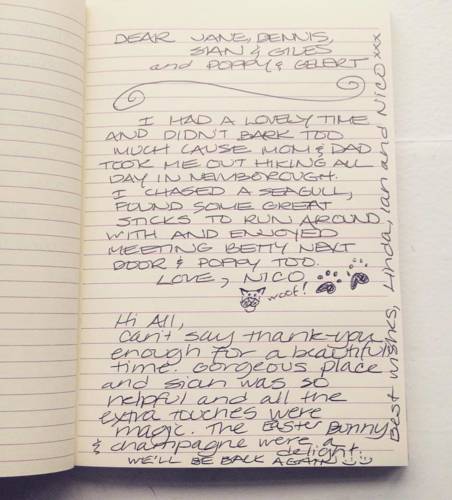 DEAR JANE, DENNIS,
SIAN & GILES
and POPPY & GELERT
I HAD A LOVELY TIME
AND DIDN'T BARK TOO
MUCH CAUSE MOM & DAD
TOOK ME OUT HIKING ALL
DAY IN NEWBOROUGH.
I CHASED A SEAGULL,
FOUND SOME GREAT
STICKS TO RUN AROUND
WITH AND ENJOYED
MEETING BETTY NEXT
DOOR & POPPY TOO.
LOVE, NICO
woof!
Hi All,
Can't say thank-you
enough for a beautiful
time. Gorgeous place
and Sian was so
helpful and all the
extra touches were
magic. The Easter Bunny
& champagne were a
delight.
WE'LL BE BACK AGAIN
Best wishes, Linda, Ian and NICO xxx